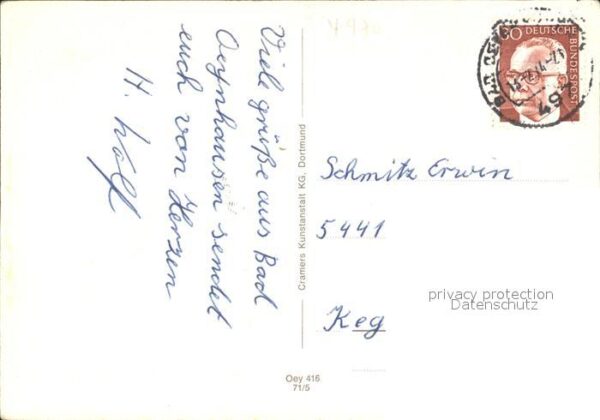 4970
Viele grüße aus Bad
Oeynhausen sendet
euch von Herzen
H. Wolf
Cramers Kunstanstalt KG. Dortmund
30 DEUTSCHE
BUNDESPOST
BAD OEYNHAUSEN
497
Schmitz Erwin
5441
Keg
privacy protection
Datenschutz
Oey 416
71/5